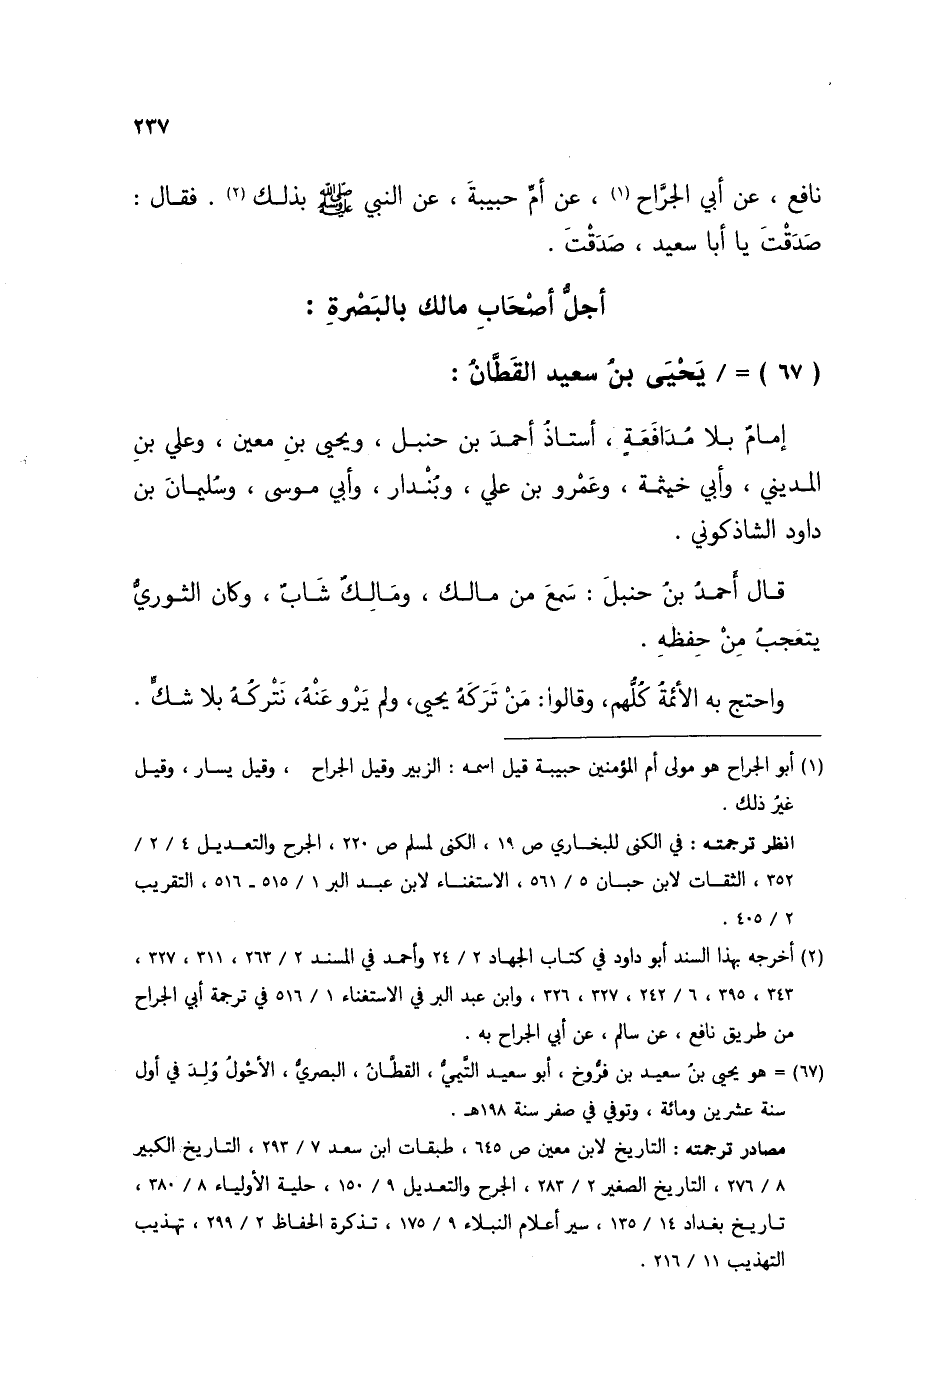 ٢٣٧
نافع ، عن أبي الجرَّاح (١) ، عن أمِّ حبيبةَ ، عن النبي ﷺ بذلـك (٢) . فقـال :
صَدَقْتَ يا أبا سعيد ، صَدَقْتَ .
أجلُّ أصْحَابِ مالك بالبَصْرةِ :
( ٦٧ ) = / يَحْيَى بنُ سعيد القَطَّانُ :
إمـامٌ بـلا مُـدَافَعَـةٍ ، أستـاذُ أحمـدَ بن حنبـل ، ويحيى بنِ معين ، وعلي بنِ
المـديني ، وأبي خيثمـة ، وعَمْرو بن علي ، وبُنْـدار ، وأبي مـوسى ، وسُليمـانَ بن
داود الشاذكوني .
قـال أَحمـدُ بنُ حنبلَ : سَمِعَ من مـالـك ، ومَـالِـكٌ شَـابٌ ، وكان الثـوريُّ
يتعَجبُ مِنْ حِفظهِ .
واحتج به الأئمةُ كُلُّهم، وقالوا: مَنْ تَرَكَهُ يحيى، ولم يَرْوِ عَنْهُ، نَتْركُـهُ بلا شـكٍّ .
(١) أبو الجراح هو مولى أم المؤمنين حبيبـة قيل اسمـه : الزبير وقيل الجراح ، وقيل يسار ، وقيـل
غيرُ ذلك .
انظر ترجمتـه : في الكنى للبخـاري ص ١٩ ، الكنى لمسلم ص ٢٢٠ ، الجرح والتعـديـل ٤ / ٢ /
٣٥٢ ، الثقـات لابن حبـان ٥ / ٥٦١ ، الاستغنـاء لابن عبـد البر ١ / ٥١٥ ـ ٥١٦ ، التقريب
٢ / ٤٠٥ .
(٢) أخرجه بهذا السند أبو داود في كتـاب الجهاد ٢ / ٢٤ وأحمـد في المسند ٢ / ٢٦٣ ، ٣١١ ، ٣٢٧ ،
٣٤٣ ، ٣٩٥ ، ٦ / ٢٤٢ ، ٣٢٧ ، ٣٢٦ ، وابن عبد البر في الاستغناء ١ / ٥١٦ في ترجمة أبي الجراح
من طريق نافع ، عن سالم ، عن أبي الجراح به .
(٦٧) = هو يحيى بنُ سعيـد بن فرُّوخ ، أبو سعيـد التَّميميُّ ، القطَّانُ ، البصريُّ ، الأحْولُ وُلِـدَ في أول
سنة عشرين ومائة ، وتوفي في صفر سنة ١٩٨هـ .
مصادر ترجمته : التاريخ لابن معين ص ٦٤٥ ، طبقـات ابن سعـد ٧ / ٢٩٣ ، التـاريخ الكبير
٨ / ٢٧٦ ، التاريخ الصغير ٢ / ٢٨٣ ، الجرح والتعديل ٩ / ١٥٠ ، حليـة الأوليـاء ٨ / ٣٨٠ ،
تـاريـخ بغداد ١٤ / ١٣٥ ، سير أعلام النبلاء ٩ / ١٧٥ ، تـذكرة الحفـاظ ٢ / ٢٩٩ ، تهـذيب
التهذيب ١١ / ٢١٦ .